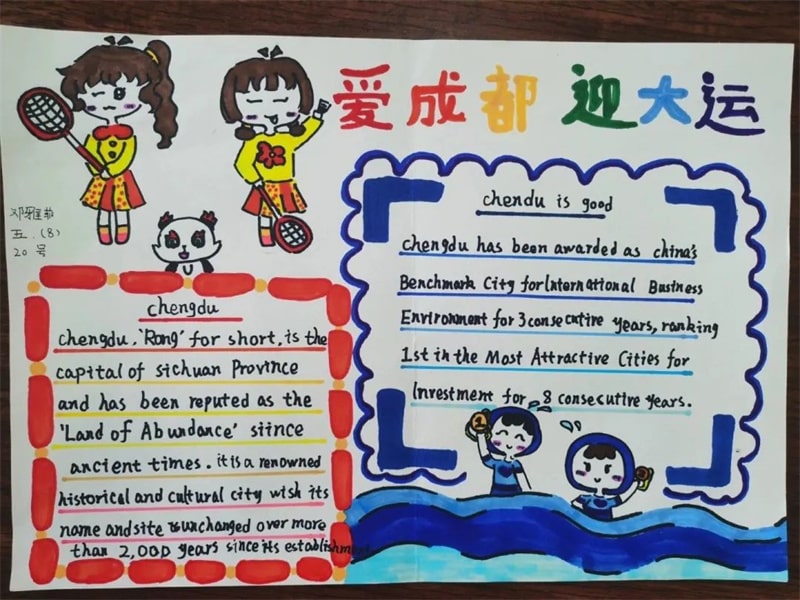 爱成都 迎大运
五.(8)
20号
chendu is good
chengdu has been awarded as china's
Benchmark City for International Business
Environment for 3 consecutive years, ranking
1st in the Most Attractive Cities for
Investment for 8 consecutive years.
chengdu
chengdu, 'Rong' for short, is the
capital of sichuan Province
and has been reputed as the
'Land of Abundance' siince
ancient times. it is a renowned
historical and cultural city wish its
name and site is unchanged over more
than 2,000 years since its establishment